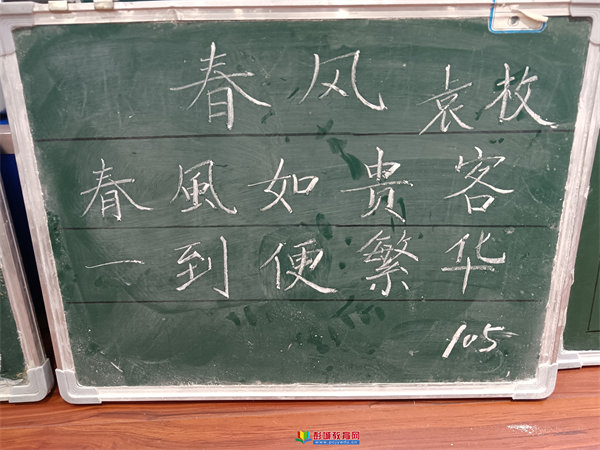 春风
袁枚
春風如贵客
一到便繁华
105
彭城教育网